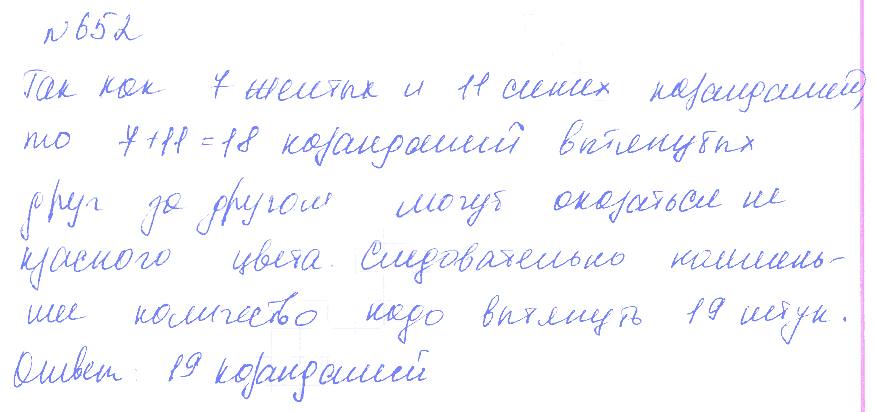 №652
Так как 7 желтых и 11 синих карандашей,
то 7+11=18 карандашей вытянутых
друг за другом могут оказаться не
красного цвета. Следовательно наимень-
шее количество надо вытянуть 19 штук.
Ответ: 19 карандашей